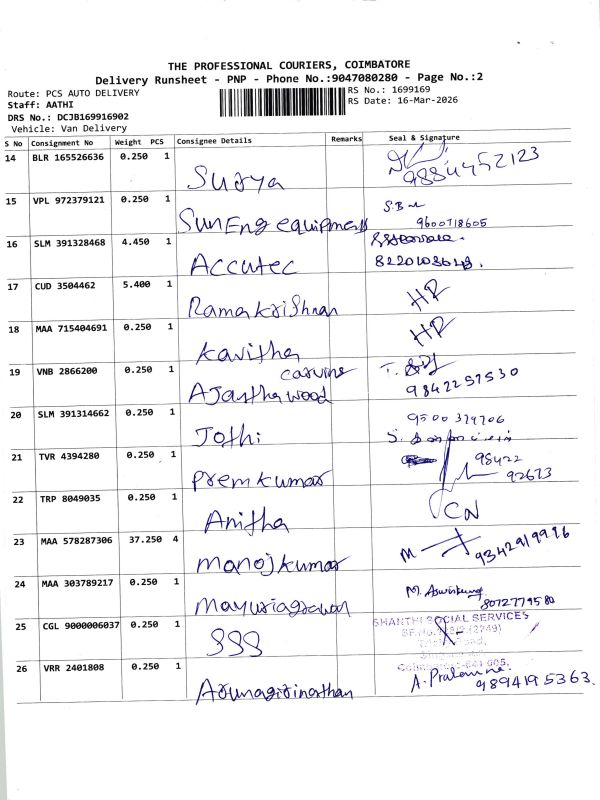 THE PROFESSIONAL COURIERS, COIMBATORE
Delivery Runsheet - PNP - Phone No.:9047080280 - Page No.:2
Route: PCS AUTO DELIVERY
RS No.: 1699169
Staff: AATHI
RS Date: 16-Mar-2026
DRS No.: DCJB169916902
Vehicle: Van Delivery
S No Consignment No Weight PCS Consignee Details Remarks Seal & Signature
14 BLR 165526636 0.250 1 Surya 9884452123
15 VPL 972379121 0.250 1 Sun Eng equipments S.B 9600718605
16 SLM 391328468 4.450 1 Accutec
17 CUD 3504462 5.400 1 Ramakrishnan HR
18 MAA 715404691 0.250 1 Kavitha HR
19 VNB 2866200 0.250 1 Ajantha wood carving 9842257530
20 SLM 391314662 0.250 1 Jothi
21 TVR 4394280 0.250 1 Premkumar 98422 92673
22 TRP 8049035 0.250 1 Anitha CN
23 MAA 578287306 37.250 4 Manojkumar M 9342919996
24 MAA 303789217 0.250 1 Mayuriagrawal M. Aswinkumar 8072779580
25 CGL 9000006037 0.250 1 SSS SHANTHI SOCIAL SERVICES
26 VRR 2401808 0.250 1 Arunagirinathan A. 9894195363